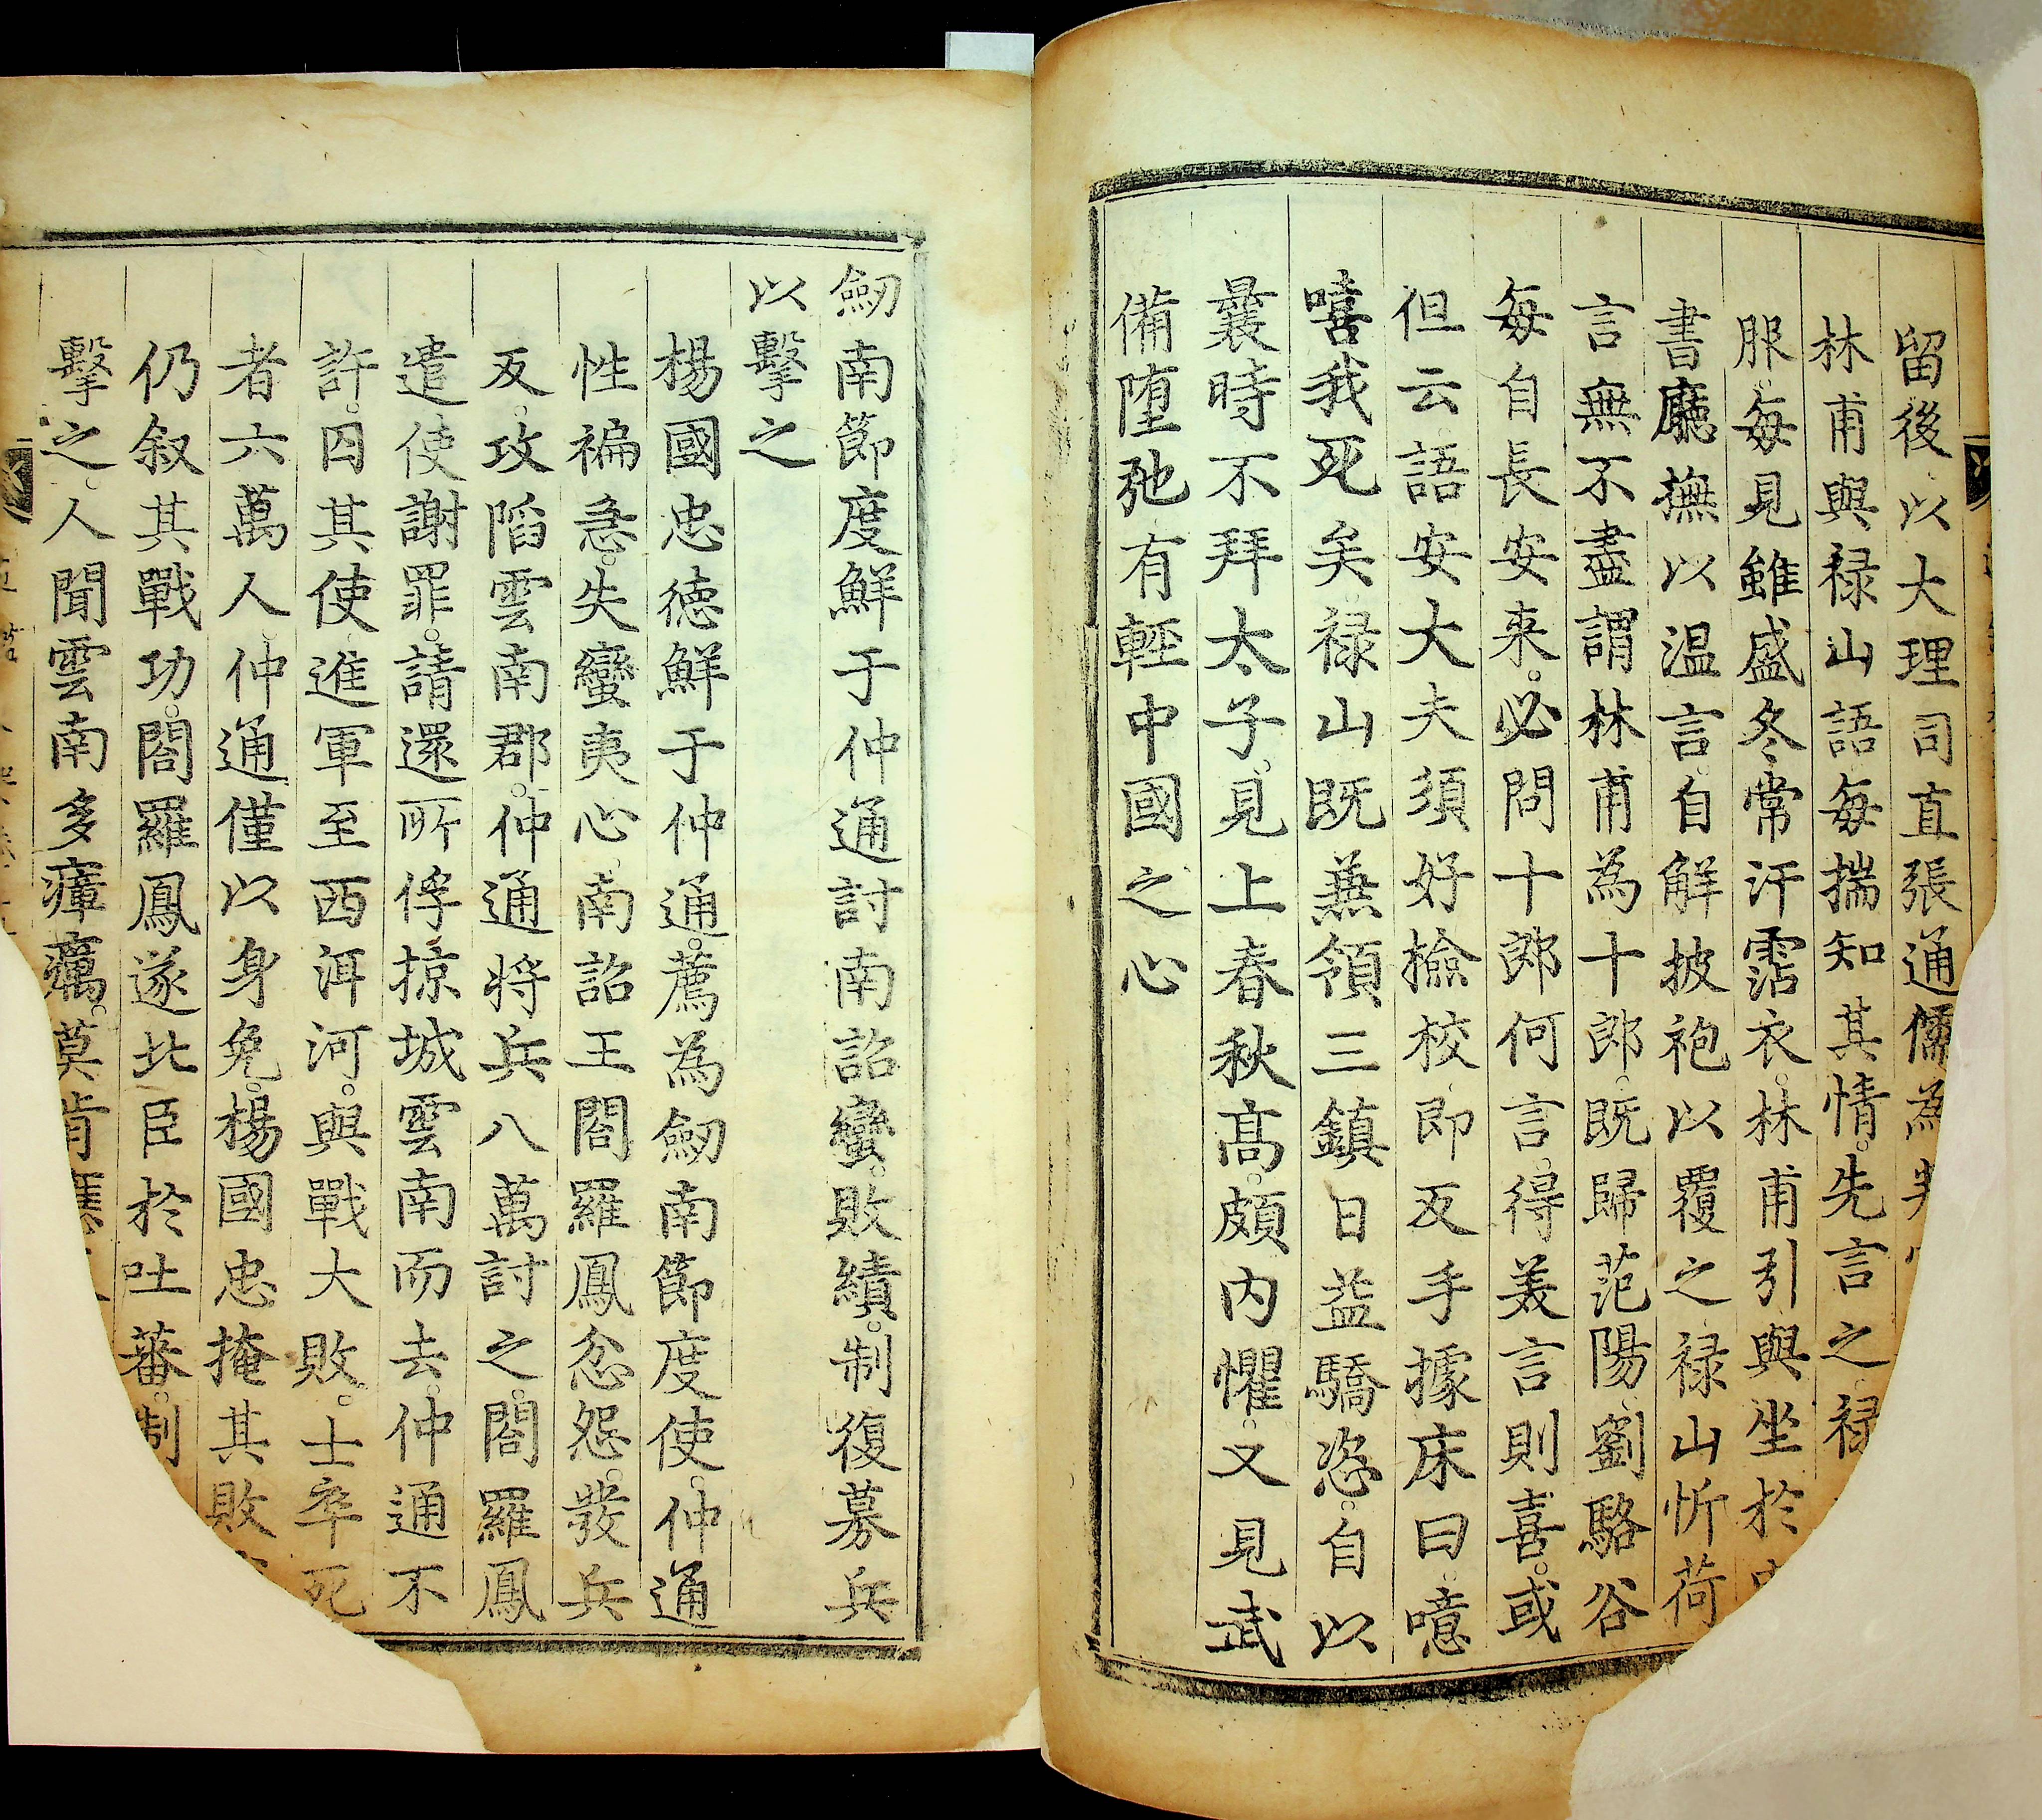 留後以大理司直張通儒為
林甫與禄山語每揣知其情先言之禄
服每見雖盛冬常汗霑衣林甫引與坐於
書廳撫以温言自解披袍以覆之禄山忻荷
言無不盡謂林甫為十郎既歸范陽劉駱谷
每自長安来必問十郎何言得美言則喜或
但云語安大夫須好檢校即反手據床曰噫
嘻我死矣禄山既兼領三鎮日益驕恣自以
曩時不拜太子見上春秋高頗内懼又見武
備堕弛有輕中國之心
劒南節度鮮于仲通討南詔蠻敗績制復募兵
以擊之
楊國忠德鮮于仲通薦為劒南節度使仲通
性褊急失蠻夷心南詔王閤羅鳳忿怨發兵
反攻陷雲南郡仲通將兵八萬討之閤羅鳳
遣使謝罪請還所俘掠城雲南而去仲通不
許囚其使進軍至西洱河與戰大敗士卒死
者六萬人仲通僅以身免楊國忠掩其敗
仍叙其戰功閤羅鳳遂北臣於吐蕃制
擊之人聞雲南多瘴癘莫肯應